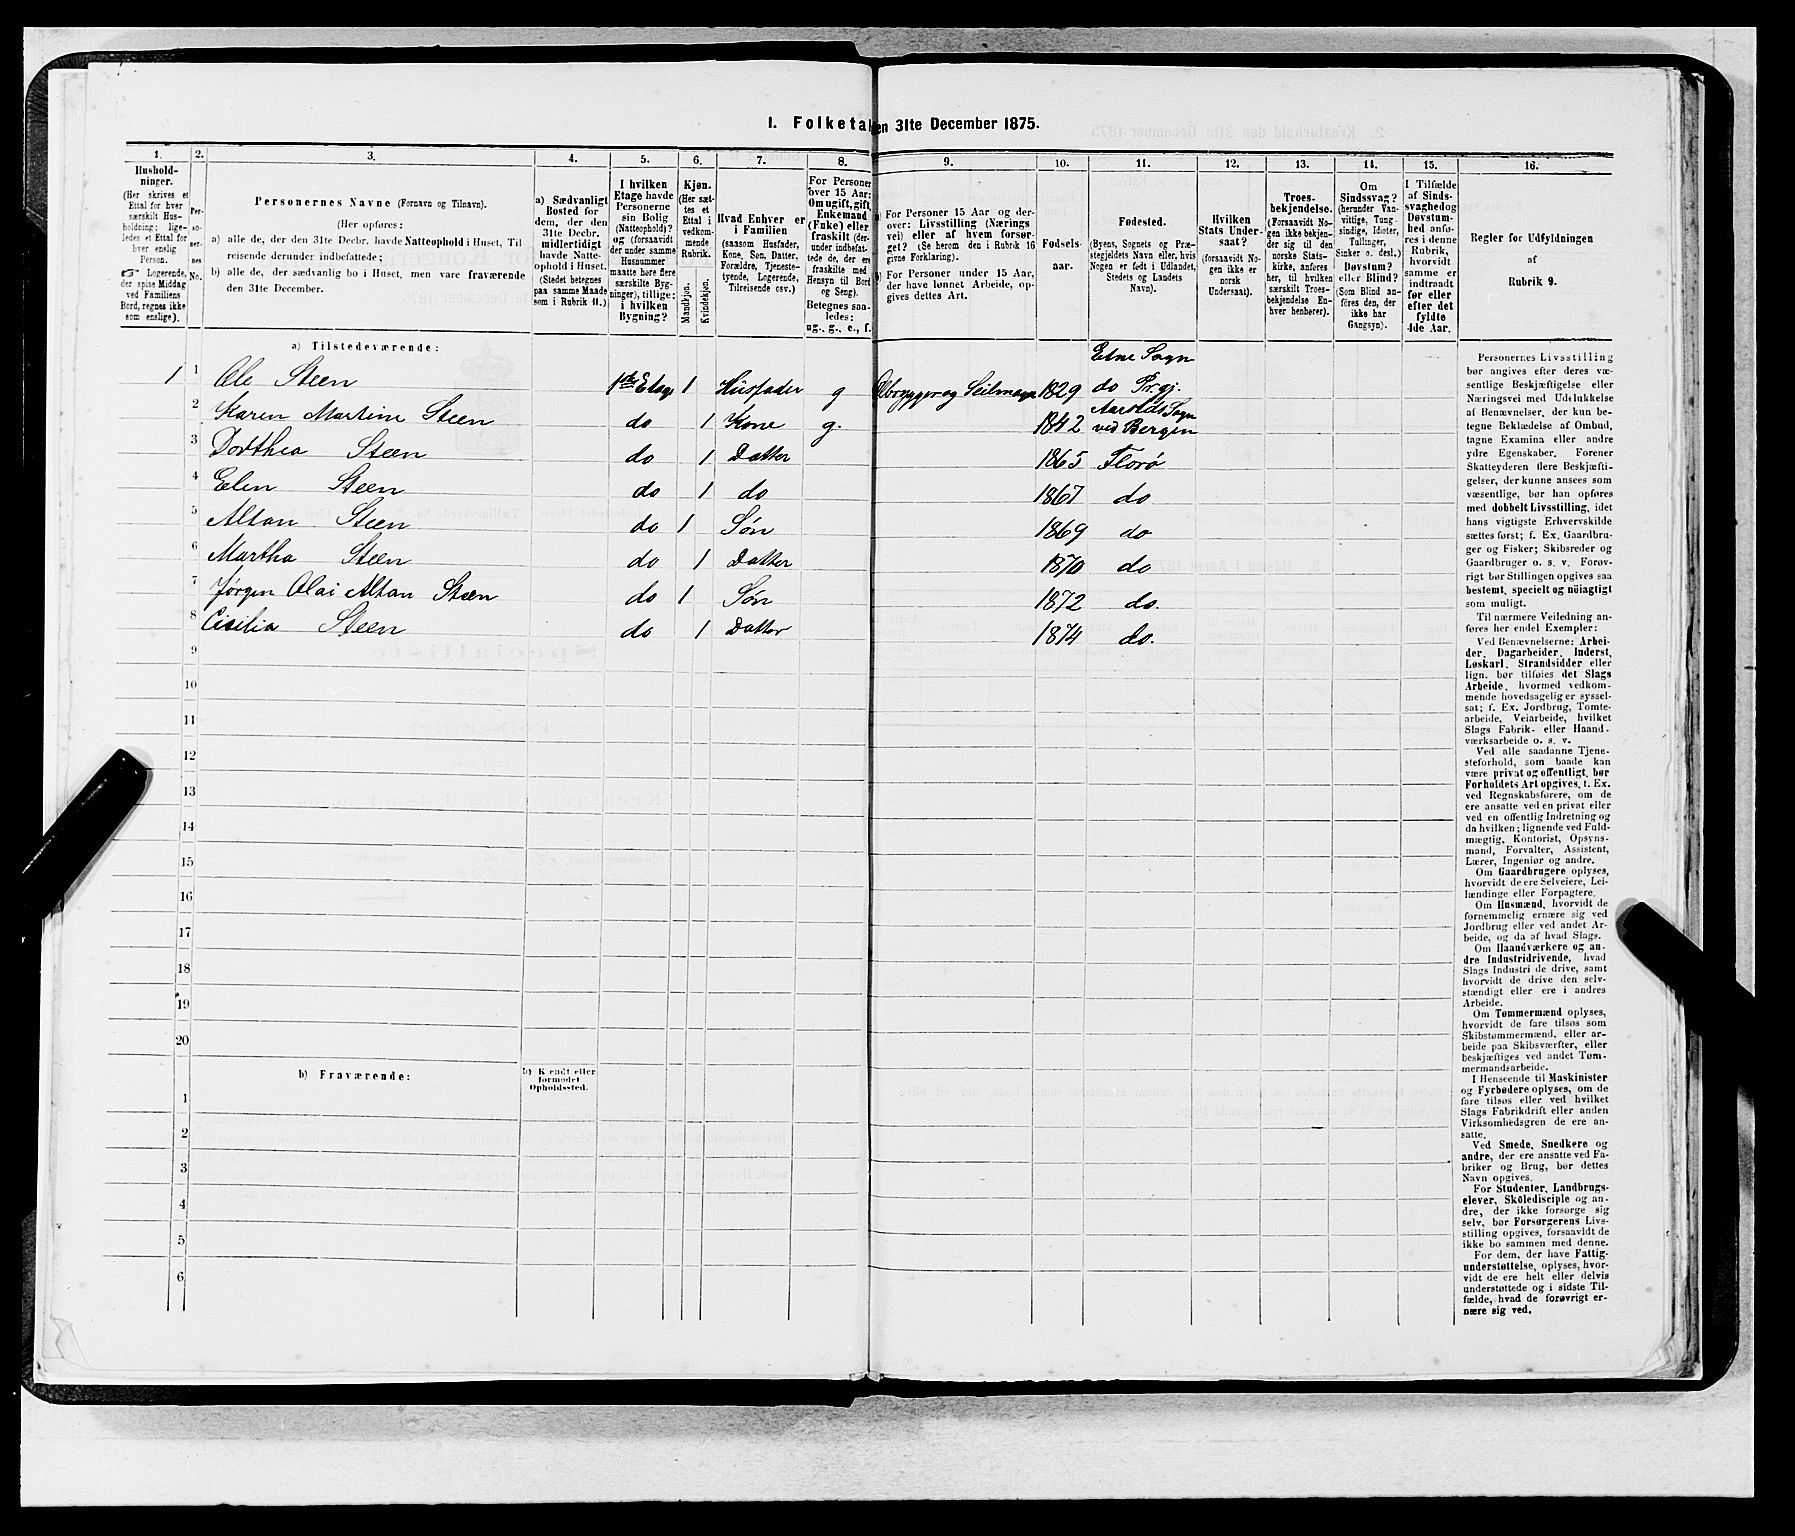 I. Folketal den 31te December 1875.
1. 2. 3. 4. 5. 6. 7. 8. 9. 10. 11. 12. 13. 14. 15. 16.
Hushold-
ninger.
(Her skrives et
Ettal for hver
særskilt Hus-
holdning; lige-
ledes et Ettal for
hver enslig
Person.
☞ Logerende,
der spise Middag
ved Familiens
Bord, regnes ikke
som enslige).
Per-
so-
ner-
nes
No.
Personernes Navne (Fornavn og Tilnavn).
(Her opføres:
a) alle de, der den 31te Decbr. havde Natteophold i Huset, Til
reisende derunder indbefattede;
b) alle de, der sædvanlig bo i Huset, men vare fraværende
den 31te December.
a) Sædvanligt
Bosted for
dem, der den
31te Decbr.
midlertidigt
havde Natte-
ophold i Huset.
(Stedet betegnes
paa samme Maade
som i Rubrik 11.)
I hvilken
Etage havde
Personerne
sin Bolig
(Natteophold)?
og (forsaavidt
der under samme
Husnummer
maatte høre flere
særskilte Byg-
ninger), tillige:
i hvilken
Bygning?
Kjøn.
(Her sæt-
tes et
Ettal i
vedkom-
mende
Rubrik.
Mandkjøn.
Kvindekjøn.
Hvad Enhver er
i Familien
(saasom Husfader,
Kone, Søn, Datter,
Forældre, Tjeneste-
tyende, Logerende,
Tilreisende osv.)
For Personer
over 15 Aar:
Om ugift, gift,
Enkemand
(Enke) eller
fraskilt (der-
under indbefat-
tede de, der ere
fraskilte med
Hensyn til Bord
og Seng).
Betegnes saa-
ledes:
ug., g., e., f.
a) For Personer 15 Aar og der-
over: Livsstilling (Nærings
vei) eller af hvem forsør-
get? (Se herom den i Rubrik 16
givne Forklaring).
b) For Personer under 15 Aar,
der have lønnet Arbeide, op-
gives dettes Art.
Fødsels-
aar.
Fødested.
(Byens, Sognets og Præ-
stegjeldets Navn eller, hvis
Nogen er født i Udlandet,
Stedets og Landets
Navn).
Hvilken
Stats Under-
saat?
(forsaavidt No-
gen ikke er
norsk
Undersaat).
Troes-
bekjendelse.
(Forsaavidt No-
gen ikke bekjen-
der sig til den
norske Stats-
kirke, anføres
her, til hvilken
særskilt Troes-
bekjendelse En-
hver henhører).
Om
Sindssvag?
(herunder Van-
vittige, Tung-
sindige, Idioter,
Tullinger,
Sinker o. desl.)
Døvstum?
eller Blind?
(Som Blind an-
føres den, der
ikke har
Gangsyn).
I Tilfælde
af Sinds-
svaghed og
Døvstum-
hed anfø-
res i denne
Rubrik,
hvorvidt
samme er
indtraadt
før eller
efter det
fyldte
4de Aar.
Regler for Udfyldningen
af
Rubrik 9.
a) Tilstedeværende:
Etne Sogn
1 1 Ole Steen 1ste Etage 1 Husfader g og Seilmager 1829 do Prgj.
Sogn
2 Karen Martine Steen do 1 Kone g. 1842 ved Bergen
3 Dorthea Steen do 1 Datter 1865 Florø
4 Elen Steen do 1 do 1867 do
5 Altan Steen do 1 Søn 1869 do
6 Martha Steen do 1 Datter 1870 do
7 Jørgen Olai Altan Steen do 1 Søn 1872 do.
8 Cicilia Steen do 1 Datter 1874 do.
9
10
11
12
13
14
15
16
17
18
19
20
b) Fraværende: b) Kjendt eller
formodet
Opholdssted.
1
2
3
4
5
6
Personernes Livsstilling
bør angives efter deres væ-
sentlige Beskjæftigelse eller
Næringsvei med Udelukkelse
af Benævnelser, der kun be-
tegne Beklædelse af Ombud,
tagne Examina eller andre
ydre Egenskaber. Forener
Skatteyderen flere Beskjæfti-
gelser, der kunne ansees som
væsentlige, bør han opføres
med dobbelt Livsstilling, idet
hans vigtigste Erhvervskilde
sættes først; f. Ex. Gaardbru-
ger og Fisker; Skibsreder og
Gaardbruger o. s. v. Forøv-
rigt bør Stillingen opgives saa
bestemt, specielt og nøiagtigt
som muligt.
Til nærmere Veiledning an-
føres her endel Exempler:
Ved Benævnelserne: Arbei-
der, Dagarbeider, Inderst,
Løskarl, Strandsidder eller
lign. bør tilføies det Slags
Arbeide, hvormed vedkom-
mende hovedsagelig er syssel-
sat; f. Ex. Jordbrug, Tomte-
arbeide, Veiarbeide, hvilket
Slags Fabrik- eller Haand-
værksarbeide o. s. v.
Ved alle saadanne Tjene-
steforhold, som baade kan
være privat og offentligt, bør
Forholdets Art opgives, t. Ex.
ved Regnskabsførere, om de
ere ansatte ved en privat eller
ved en offentlig Indretning og
da hvilken; lignende ved Fuld-
mægtig, Kontorist, Opsyns-
mand, Forvalter, Assistent,
Lærer, Ingeniør og andre.
Om Gaardbrugere oplyses,
hvorvidt de ere Selveiere, Lei-
lændinge eller Forpagtere.
Om Husmænd, hvorvidt de
fornemmelig ernære sig ved
Jordbrug eller ved andet Ar-
beide, og da af hvad Slags.
Om Haandværkere og an-
dre Industridrivende, hvad
Slags Industri de drive, samt
hvorvidt de drive den selv-
stændigt eller ere i andres
Arbeide.
Om Tømmermænd oplyses,
hvorvidt de fare tilsøs som
Skibstømmermænd, eller ar-
beide paa Skibsværfter, eller
beskjæftiges ved andet Tøm-
mermandsarbeide.
I Henseende til Maskinister
og Fyrbødere oplyses, om de
fare tilsøs eller ved hvilket
Slags Fabrikdrift eller anden
Virksomhedsgren de ere an-
satte.
Ved Smede, Snedkere og
andre, der ere ansatte ved Fa-
briker og Brug, bør dettes
Navn opgives.
For Studenter, Landbrugs-
elever, Skoledisciple og an-
dre, der ikke forsørge sig
selv, bør Forsørgerens Livs-
stilling opgives, forsaavidt de
ikke bo sammen med denne.
For dem, der have Fattig-
understøttelse, oplyses, hvor-
vidt de ere helt eller delvis
understøttede og i sidste Til-
fælde, hvad de forøvrigt er-
nære sig ved.